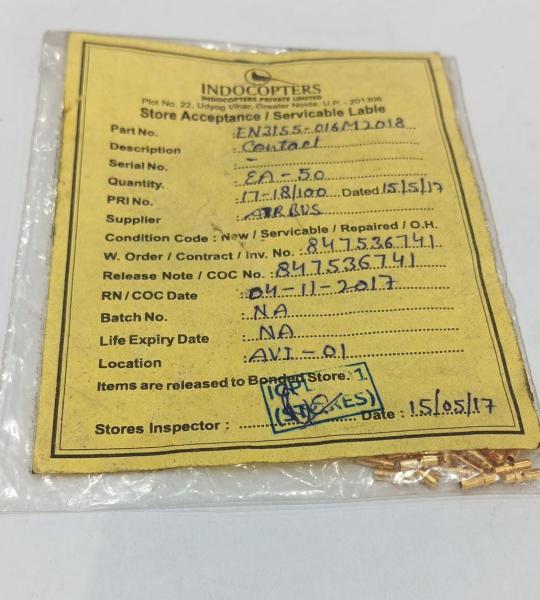 INDOCOPTERS
INDOCOPTERS PRIVATE LIMITED
Plot No. 22, Udyog Vihar, Greater Noida, U.P. - 201306
Store Acceptance / Servicable Lable
Part No. : EN3155-016M2018
Description : Contact
Serial No. : -
Quantity. : EA - 50
PRI No. : 17-18/100 Dated 15/5/17
Supplier : AIRBUS
Condition Code : New / Servicable / Repaired / O.H.
W. Order / Contract / Inv. No. : 847536741
Release Note / COC No. : 847536741
RN / COC Date : 04-11-2017
Batch No. : NA
Life Expiry Date : NA
Location : AVI - 01
Items are released to Bonded Store. 1
ICPL
(STORES)
Stores Inspector : Date : 15/05/17